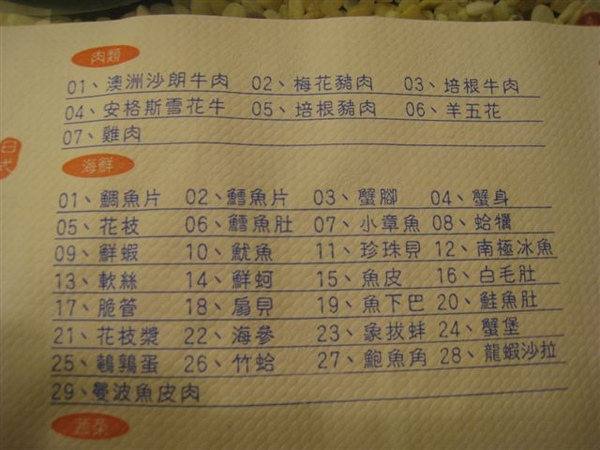 肉類
01、澳洲沙朗牛肉 02、梅花豬肉 03、培根牛肉
04、安格斯雪花牛 05、培根豬肉 06、羊五花
07、雞肉
日式
海鮮
01、鯛魚片 02、鱈魚片 03、蟹腳 04、蟹身
05、花枝 06、鱈魚肚 07、小章魚 08、蛤蠣
09、鮮蝦 10、魷魚 11、珍珠貝 12、南極冰魚
13、軟絲 14、鮮蚵 15、魚皮 16、白毛肚
17、脆管 18、扇貝 19、魚下巴 20、鮭魚肚
21、花枝漿 22、海參 23、象拔蚌 24、蟹堡
25、鵪鶉蛋 26、竹蛤 27、鮑魚角 28、龍蝦沙拉
29、曼波魚皮肉
蔬菜